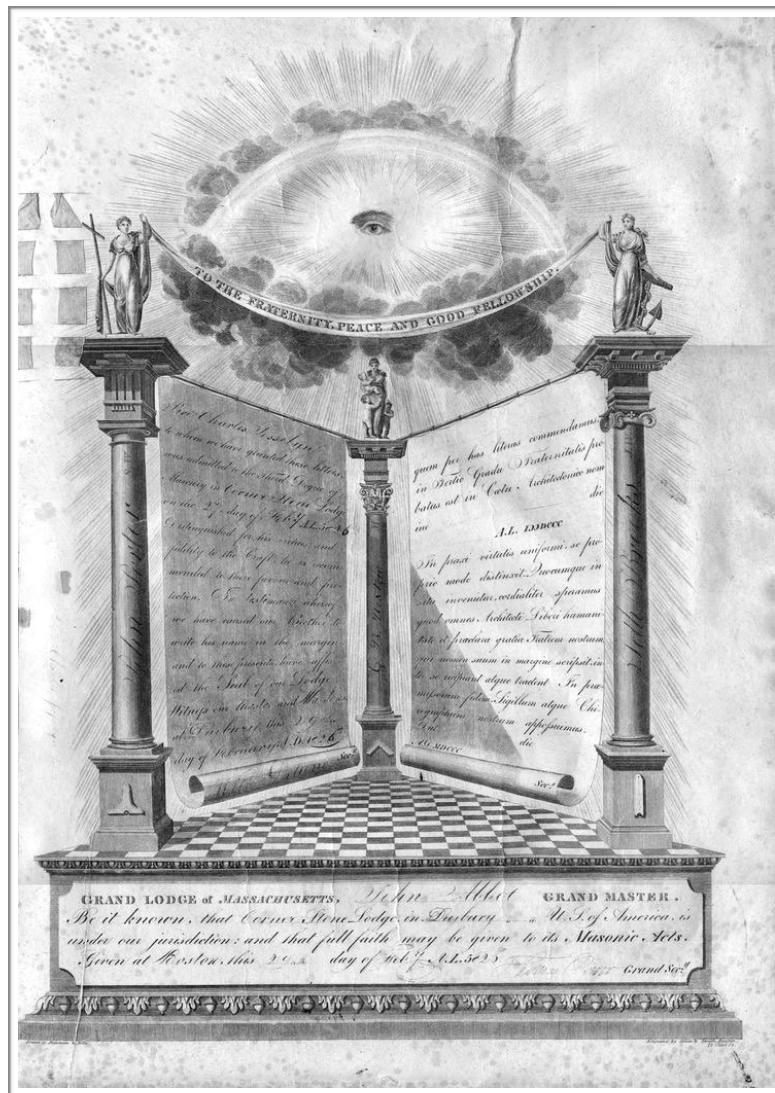 TO THE FRATERNITY, PEACE AND GOOD FELLOWSHIP.
Charles
to whom we have granted these letters,
was admitted to the third Degree of
Masonry in Corner Stone Lodge
on the 2 day of Feby A.L. 5826
Distinguished for his virtues and
fidelity to the Craft, he is recom-
mended to those favors and pro-
tection. In testimony whereof
we have caused our Brother to
write his name in the margin
and to these presents have affix-
ed the Seal of our Lodge
Witness our Master and
at Duxbury this 29
day of February A.L. 5826
Secy
quem per has literas commendamus,
in Tertio Gradu Fraternitatis pro
batus est in Cœtu Architedonico nom
ine die
A.L. IƆƆDCCC
In praxi virtutis uniformi, se pro
prio modo distinxit. Quocumque in
situ invenietur, cordialiter speramus
quod omnes Architecti Liberi humani
tate et præclara gratia Fratrem nostrum
qui nomen suum in margine scripsit, in
te se recipiant atque tradent In præ
missorum fidem Sigillum atque Chi
rographum nostrum appossuimus.
Dat die
Secy
GRAND LODGE of MASSACHUSETTS, John Abbot GRAND MASTER.
Be it known, that Corner Stone Lodge, in Duxbury U.S. of America, is
under our jurisdiction; and that full faith may be given to its Masonic Acts.
Given at Boston, this 29 day of Feby A.L. 582 Grand Secy